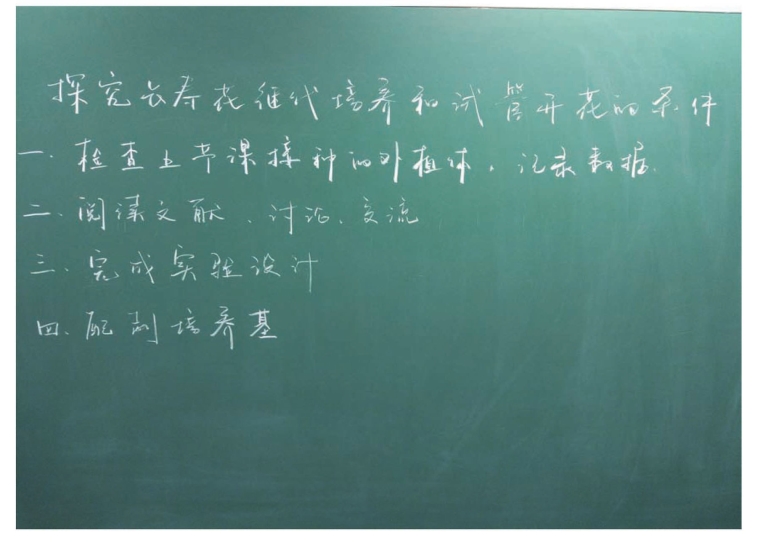 探究长寿花继代培养和试管开花的条件
一、检查上节课接种的外植体，记录数据.
二、阅读文献、讨论、交流
三、完成实验设计
四、配制培养基